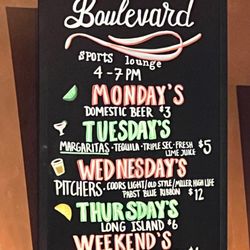 Boulevard
sports lounge
4-7 PM
MONDAY'S
DOMESTIC BEER $3
TUESDAY'S
MARGARITAS · TEQUILA · TRIPLE SEC · FRESH
LIME JUICE $5
WEDNESDAY'S
PITCHERS · COORS LIGHT/OLD STYLE/MILLER HIGH LIFE
PABST BLUE RIBBON $12
THURSDAY'S
LONG ISLAND $6
WEEKEND'S